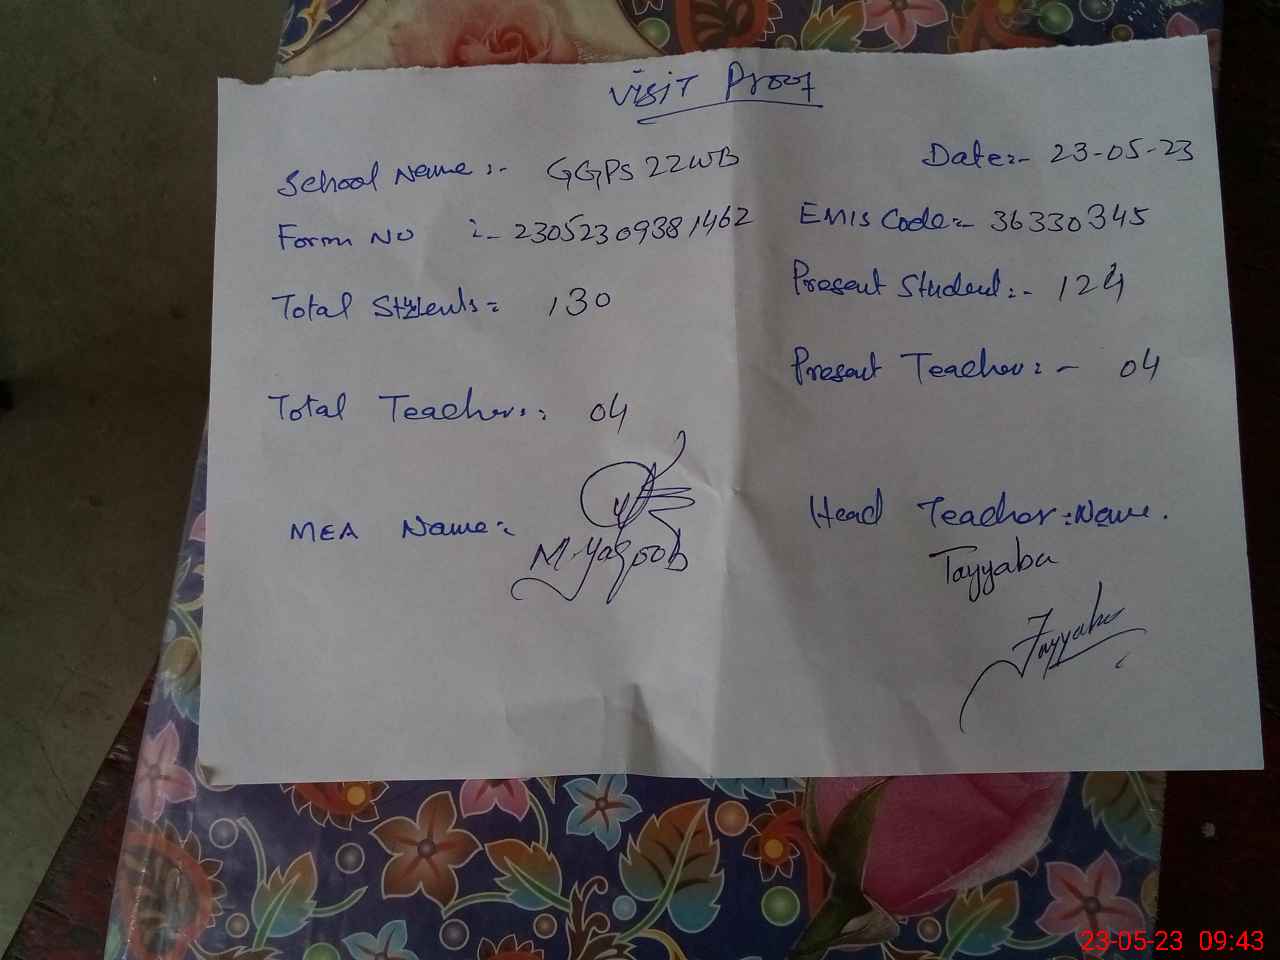 Visit Proof
School Name :- GGPS 22WB
Date:- 23-05-23
Form NO :- 23052309381462
EMIS Code:- 36330345
Total Students: 130
Present Student:- 124
Total Teachers: 04
Present Teacher:- 04
MEA Name:
M. Yaqoob
Head Teacher:Name.
Tayyaba
Tayyaba
23-05-23 09:43